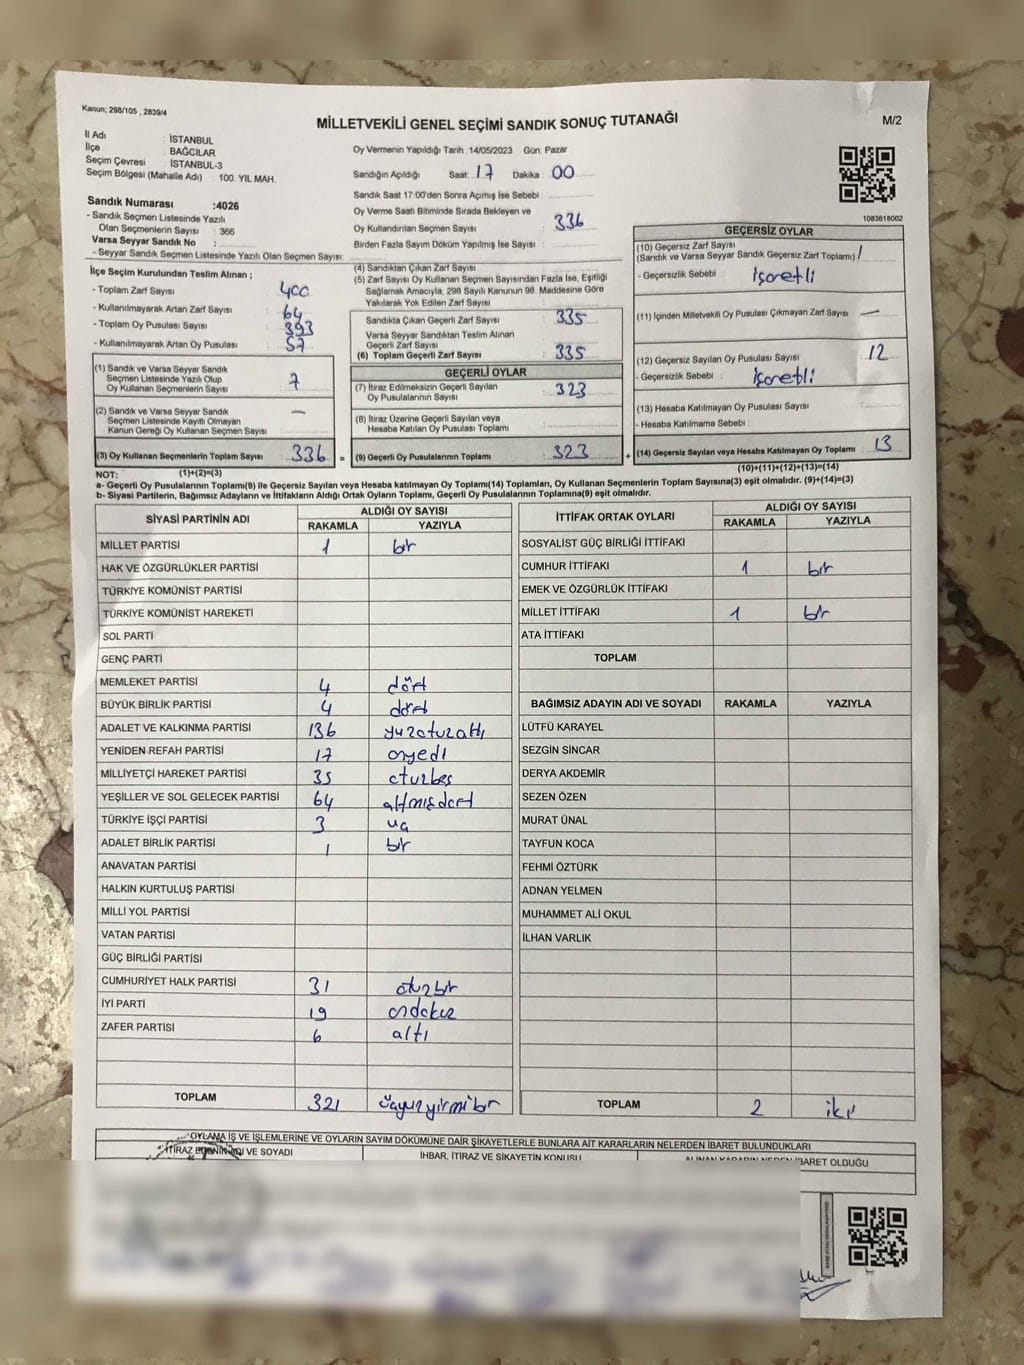 Kanun; 298/105 , 2839/4
MİLLETVEKİLİ GENEL SEÇİMİ SANDIK SONUÇ TUTANAĞI
M/2
İl Adı : İSTANBUL
İlçe : BAĞCILAR
Seçim Çevresi : İSTANBUL-3
Seçim Bölgesi (Mahalle Adı) : 100. YIL MAH.
Sandık Numarası :4026
- Sandık Seçmen Listesinde Yazılı
Olan Seçmenlerin Sayısı : 366
Varsa Seyyar Sandık No :
- Seyyar Sandık Seçmen Listesinde Yazılı Olan Seçmen Sayısı:
Oy Vermenin Yapıldığı Tarih :14/05/2023 Gün: Pazar
Sandığın Açıldığı Saat: 17 Dakika : 00
Sandık Saat 17:00'den Sonra Açımış İse Sebebi :
Oy Verme Saati Bitiminde Sırada Bekleyen ve
Oy Kullandırılan Seçmen Sayısı : 336
Birden Fazla Sayım Döküm Yapılmış İse Sayısı :
1083618002
İlçe Seçim Kurulundan Teslim Alınan ;
- Toplam Zarf Sayısı : 400
- Kullanılmayarak Artan Zarf Sayısı : 64
- Toplam Oy Pusulası Sayısı : 393
- Kullanılmayarak Artan Oy Pusulası : 57
(1) Sandık ve Varsa Seyyar Sandık
Seçmen Listesinde Yazılı Olup
Oy Kullanan Seçmenlerin Sayısı : 7
(2) Sandık ve Varsa Seyyar Sandık
Seçmen Listesinde Kayıtlı Olmayan
Kanun Gereği Oy Kullanan Seçmen Sayısı : —
(3) Oy Kullanan Seçmenlerin Toplam Sayısı : 336 =
(1)+(2)=(3)
(4) Sandıktan Çıkan Zarf Sayısı :
(5) Zarf Sayısı Oy Kullanan Seçmen Sayısından Fazla İse, Eşitliği
Sağlamak Amacıyla, 298 Sayılı Kanunun 98. Maddesine Göre
Yakılarak Yok Edilen Zarf Sayısı :
Sandıkta Çıkan Geçerli Zarf Sayısı : 335
Varsa Seyyar Sandıktan Teslim Alınan
Geçerli Zarf Sayısı :
(6) Toplam Geçerli Zarf Sayısı : 335
GEÇERLİ OYLAR
(7) İtiraz Edilmeksizin Geçerli Sayılan
Oy Pusulalarının Sayısı : 323
(8) İtiraz Üzerine Geçerli Sayılan veya
Hesaba Katılan Oy Pusulası Toplamı :
(9) Geçerli Oy Pusulalarının Toplamı : 323 +
GEÇERSİZ OYLAR
(10) Geçersiz Zarf Sayısı
(Sandık ve Varsa Seyyar Sandık Geçersiz Zarf Toplamı) : 1
- Geçersizlik Sebebi : İşaretli
(11) İçinden Milletvekili Oy Pusulası Çıkmayan Zarf Sayısı: —
(12) Geçersiz Sayılan Oy Pusulası Sayısı : 12
- Geçersizlik Sebebi : İşaretli
(13) Hesaba Katılmayan Oy Pusulası Sayısı :
- Hesaba Katılmama Sebebi :
(14) Geçersiz Sayılan veya Hesaba Katılmayan Oy Toplamı : 13
(10)+(11)+(12)+(13)=(14)
NOT:
a- Geçerli Oy Pusulalarının Toplamı(9) ile Geçersiz Sayılan veya Hesaba katılmayan Oy Toplamı(14) Toplamları, Oy Kullanan Seçmenlerin Toplam Sayısına(3) eşit olmalıdır. (9)+(14)=(3)
b- Siyasi Partilerin, Bağımsız Adayların ve İttifakların Aldığı Ortak Oyların Toplamı, Geçerli Oy Pusulalarının Toplamına(9) eşit olmalıdır.
SİYASİ PARTİNİN ADI ALDIĞI OY SAYISI
RAKAMLA YAZIYLA
MİLLET PARTİSİ 1 bir
HAK VE ÖZGÜRLÜKLER PARTİSİ
TÜRKİYE KOMÜNİST PARTİSİ
TÜRKİYE KOMÜNİST HAREKETİ
SOL PARTİ
GENÇ PARTİ
MEMLEKET PARTİSİ 4 dört
BÜYÜK BİRLİK PARTİSİ 4 dört
ADALET VE KALKINMA PARTİSİ 136 yüzotuzaltı
YENİDEN REFAH PARTİSİ 17 onyedi
MİLLİYETÇİ HAREKET PARTİSİ 35 otuzbeş
YEŞİLLER VE SOL GELECEK PARTİSİ 64 altmışdört
TÜRKİYE İŞÇİ PARTİSİ 3 üç
ADALET BİRLİK PARTİSİ 1 bir
ANAVATAN PARTİSİ
HALKIN KURTULUŞ PARTİSİ
MİLLİ YOL PARTİSİ
VATAN PARTİSİ
GÜÇ BİRLİĞİ PARTİSİ
CUMHURİYET HALK PARTİSİ 31 otuzbir
İYİ PARTİ 19 ondokuz
ZAFER PARTİSİ 6 altı
TOPLAM 321 üçyüzyirmibir
İTTİFAK ORTAK OYLARI ALDIĞI OY SAYISI
RAKAMLA YAZIYLA
SOSYALİST GÜÇ BİRLİĞİ İTTİFAKI
CUMHUR İTTİFAKI 1 bir
EMEK VE ÖZGÜRLÜK İTTİFAKI
MİLLET İTTİFAKI 1 bir
ATA İTTİFAKI
TOPLAM
BAĞIMSIZ ADAYIN ADI VE SOYADI RAKAMLA YAZIYLA
LÜTFÜ KARAYEL
SEZGİN SİNCAR
DERYA AKDEMİR
SEZEN ÖZEN
MURAT ÜNAL
TAYFUN KOCA
FEHMİ ÖZTÜRK
ADNAN YELMEN
MUHAMMET ALİ OKUL
İLHAN VARLIK
TOPLAM 2 iki
OYLAMA İŞ VE İŞLEMLERİNE VE OYLARIN SAYIM DÖKÜMÜNE DAİR ŞİKAYETLERLE BUNLARA AİT KARARLARIN NELERDEN İBARET BULUNDUKLARI
İTİRAZ EDENİN ADI VE SOYADI İHBAR, İTİRAZ VE ŞİKAYETİN KONUSU ALINAN KARARIN NEDEN İBARET OLDUĞU